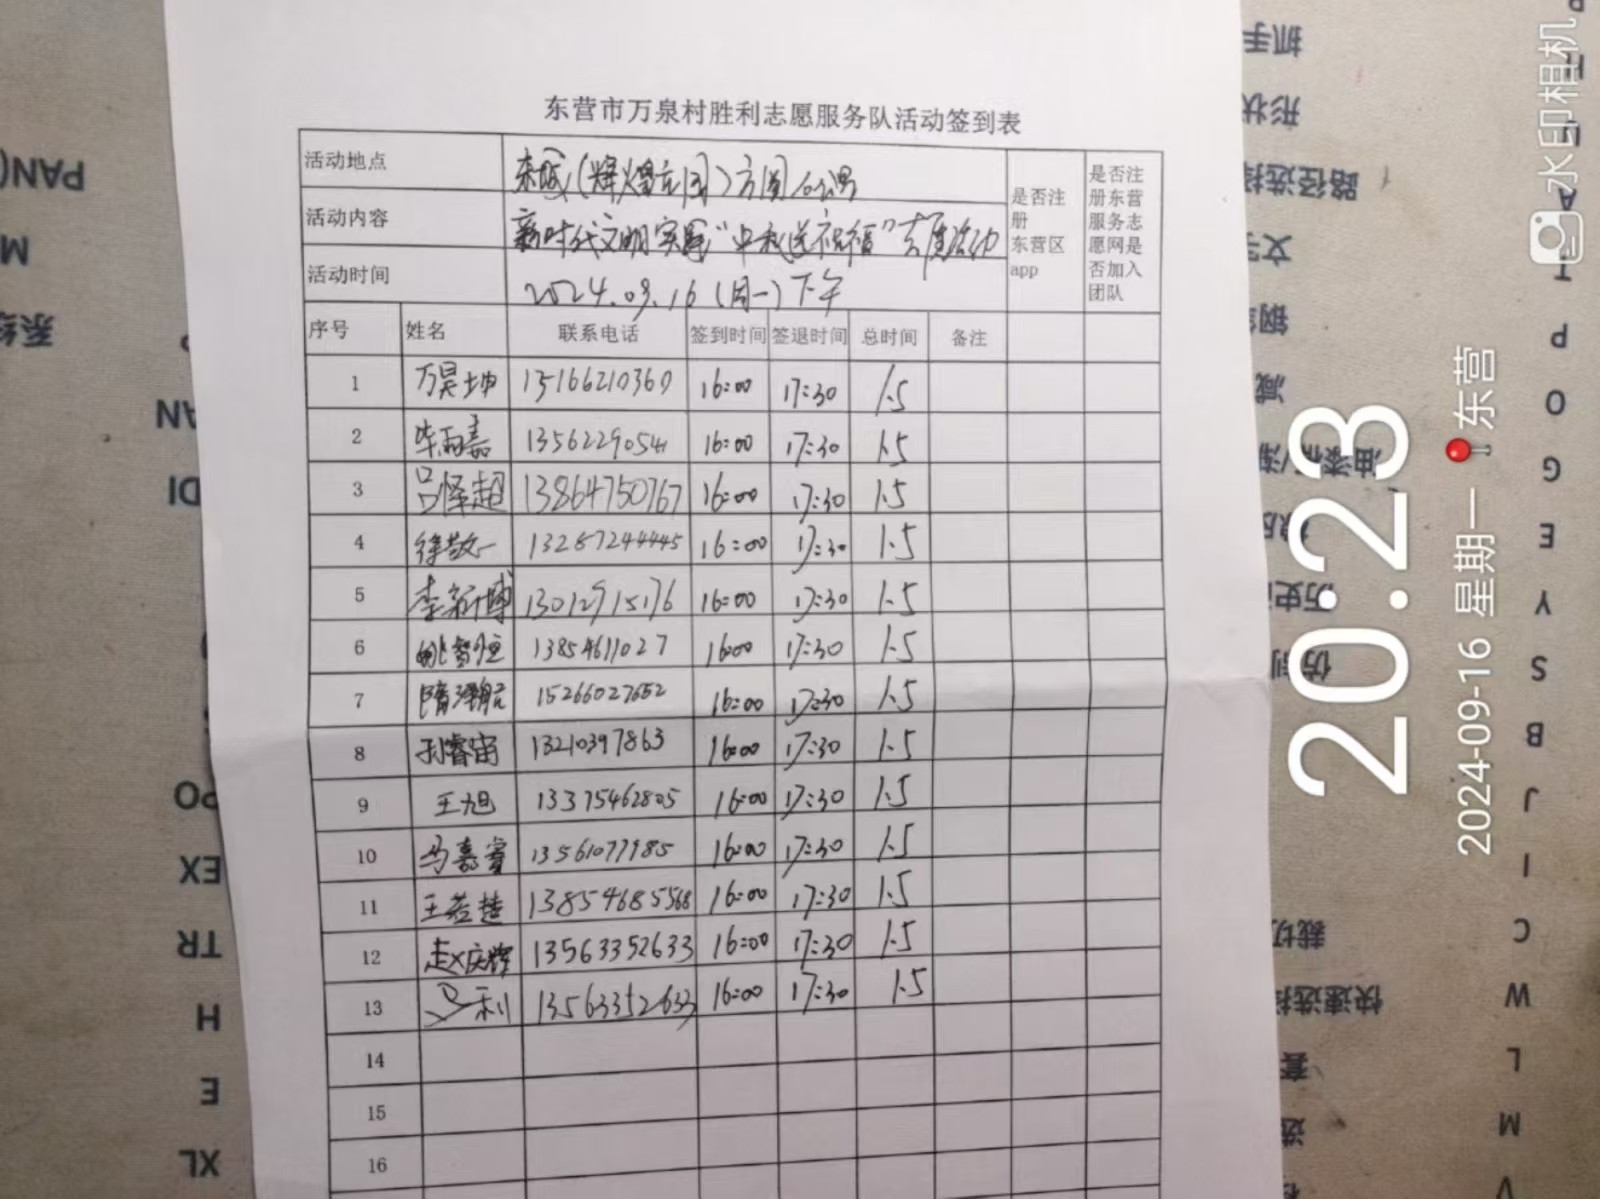 东营市万泉村胜利志愿服务队活动签到表
活动地点 东城(辉煌花园)方圆公寓
活动内容 新时代文明实践"中秋送祝福"志愿活动
活动时间 2024.09.16(周一)下午
是否注
册
东营区
app
是否注
册东营
服务志
愿网是
否加入
团队
序号 姓名 联系电话 签到时间 签退时间 总时间 备注
1 万昊坤 15166210360 16:00 17:30 1.5
2 13562290541 16:00 17:30 1.5
3 吕怿超 13864750767 16:00 17:30 1.5
4 徐敬一 13287244445 16:00 17:30 1.5
5 李新博 13012915176 16:00 17:30 1.5
6 姚智恒 13854611027 16:00 17:30 1.5
7 隋泽航 15266027652 16:00 17:30 1.5
8 刘睿宙 13210397863 16:00 17:30 1.5
9 王旭 13375462805 16:00 17:30 1.5
10 马嘉睿 13561077985 16:00 17:30 1.5
11 王若楚 13854685568 16:00 17:30 1.5
12 赵庆辉 13563352633 16:00 17:30 1.5
13 马利 13563352633 16:00 17:30 1.5
14
15
16
20:23
2024-09-16 星期一 东营
水印相机
PAN(
M
AN
DI
PO
EX
TR
H
E
XL
抓手
路径选择
减
快速选择
套
选
T
P
O
G
E
Y
S
B
J
I
C
W
L
M
V